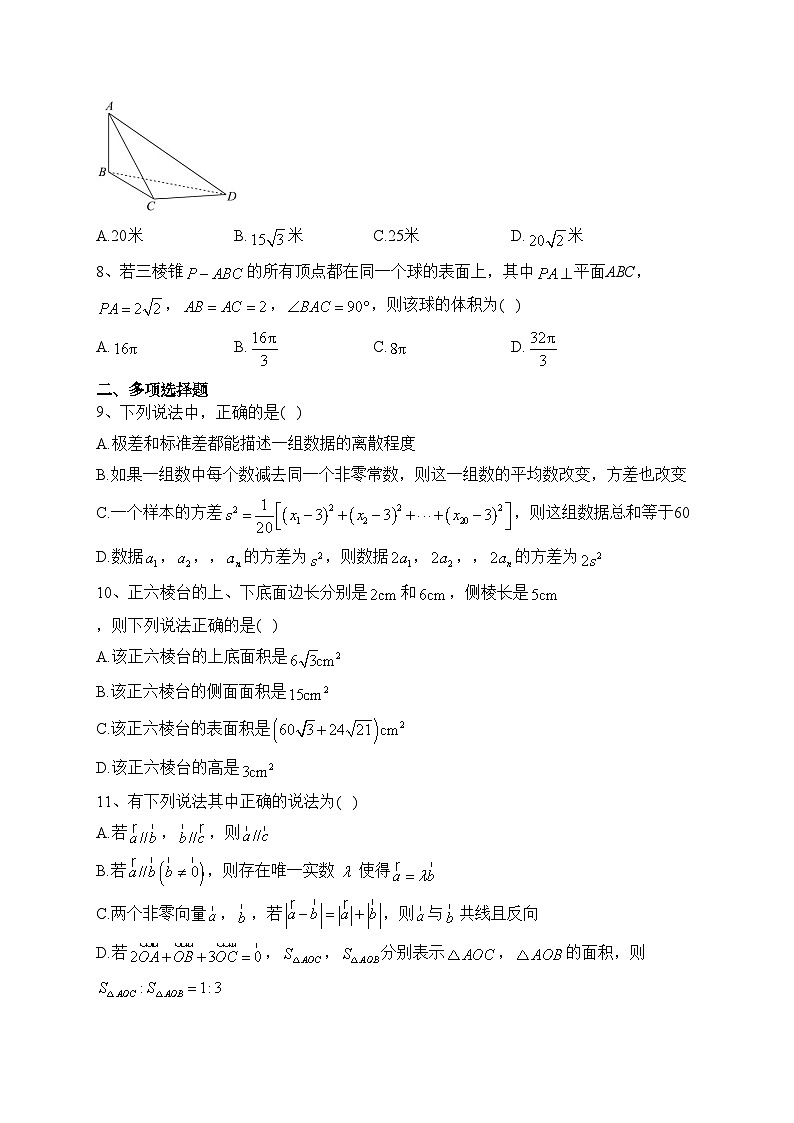 A
B
C
D
A.20米 B.15√3米 C.25米 D.20√2米
8、若三棱锥P−ABC的所有顶点都在同一个球的表面上，其中PA⊥平面ABC，
PA=2√2，AB=AC=2，∠BAC=90°，则该球的体积为( )
A.16π B.16π/3 C.8π D.32π/3
二、多项选择题
9、下列说法中，正确的是( )
A.极差和标准差都能描述一组数据的离散程度
B.如果一组数中每个数减去同一个非零常数，则这一组数的平均数改变，方差也改变
C.一个样本的方差s²=1/20[(x₁−3)²+(x₂−3)²+⋯+(x₂₀−3)²]，则这组数据总和等于60
D.数据a₁，a₂，，aₙ的方差为s²，则数据2a₁，2a₂，，2aₙ的方差为2s²
10、正六棱台的上、下底面边长分别是2cm和6cm，侧棱长是5cm
，则下列说法正确的是( )
A.该正六棱台的上底面积是6√3cm²
B.该正六棱台的侧面面积是15cm²
C.该正六棱台的表面积是(60√3+24√21)cm²
D.该正六棱台的高是3cm²
11、有下列说法其中正确的说法为( )
A.若a//b，b//c，则a//c
B.若a//b(b≠0)，则存在唯一实数λ使得a=λb
C.两个非零向量a，b，若|a−b|=|a|+|b|，则a与b共线且反向
D.若2OA+OB+3OC=0，S△AOC，S△AOB分别表示△AOC，△AOB的面积，则
S△AOC:S△AOB=1:3